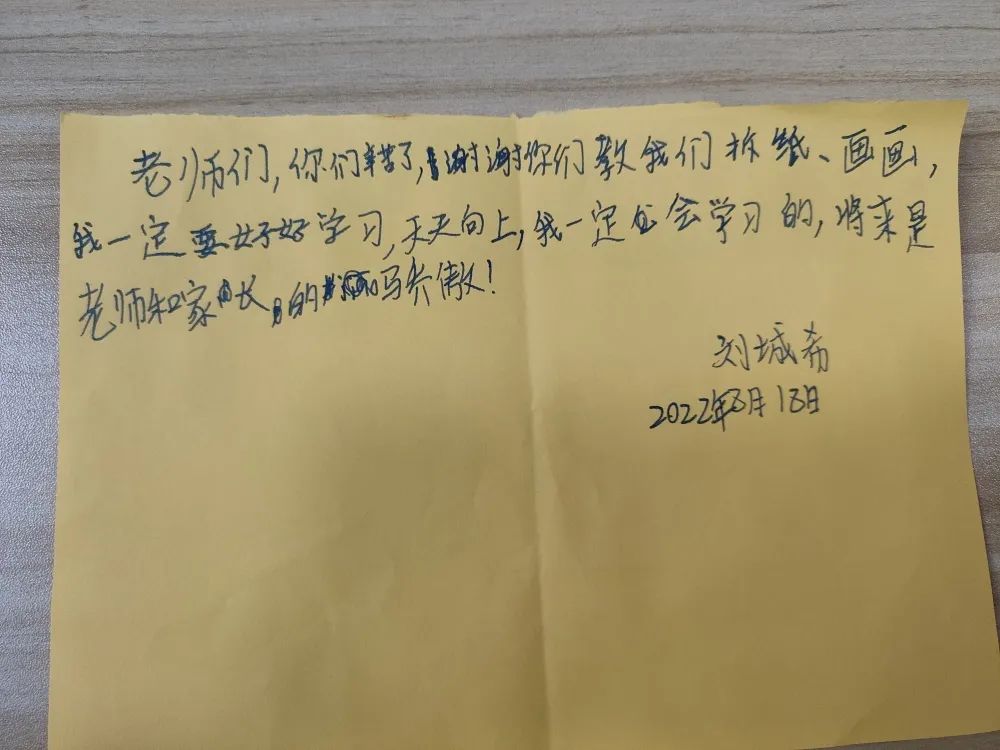 老师们,你们辛苦了,谢谢你们教我们折纸、画画,
我一定要好好学习,天天向上,我一定会学习的,将来是
老师和家长的骄傲!
刘城希
2022年8月18日